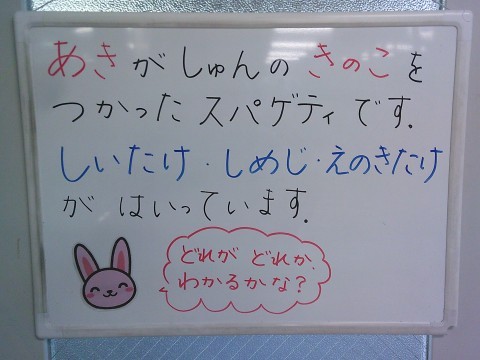 あきがしゅんの きのこを
つかった スパゲティ です.
しいたけ・しめじ・えのきたけ
が はいっています.
どれが どれか、
わかるかな?